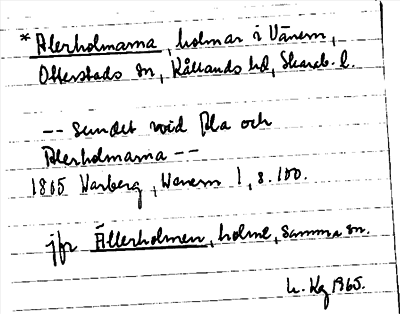 *Alerholmarna, holmar i Vänern,
Otterstads sn, Kållands hd, Skarab. l.
-- sundet wid Ala och
Alerholmarna --
1805 Warberg, Wenern 1, s. 100.
jfr Ållerholmen, holme, samma sn.
1965.